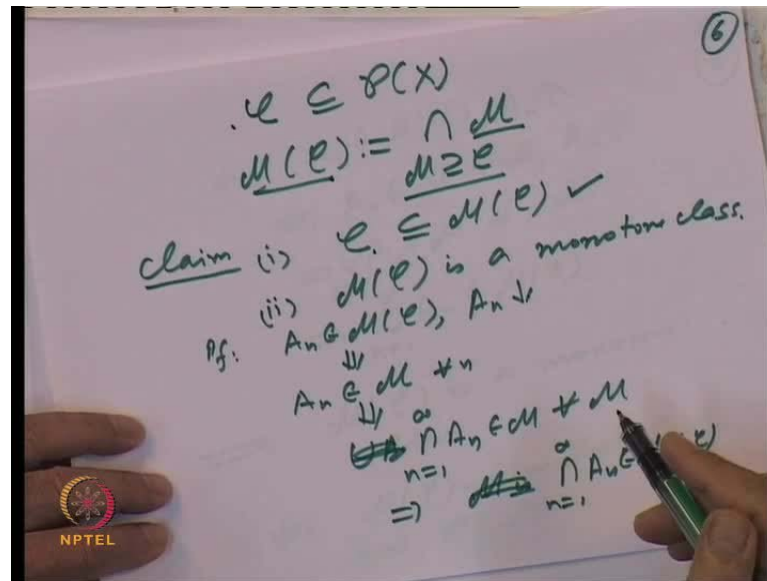 6
𝒞 ⊆ 𝒫(X)
ℳ(𝒞) := ∩ ℳ
ℳ ⊇ 𝒞
Claim (i) 𝒞 ⊆ ℳ(𝒞) ✓
(ii) ℳ(𝒞) is a monotone class.
Pf: Aₙ ∈ ℳ(𝒞), Aₙ ↓
⇓
Aₙ ∈ ℳ ∀ n
⇓
∞
∩ Aₙ ∈ ℳ ∀ ℳ
n=1
∞
⇒ ∩ Aₙ ∈
n=1
NPTEL